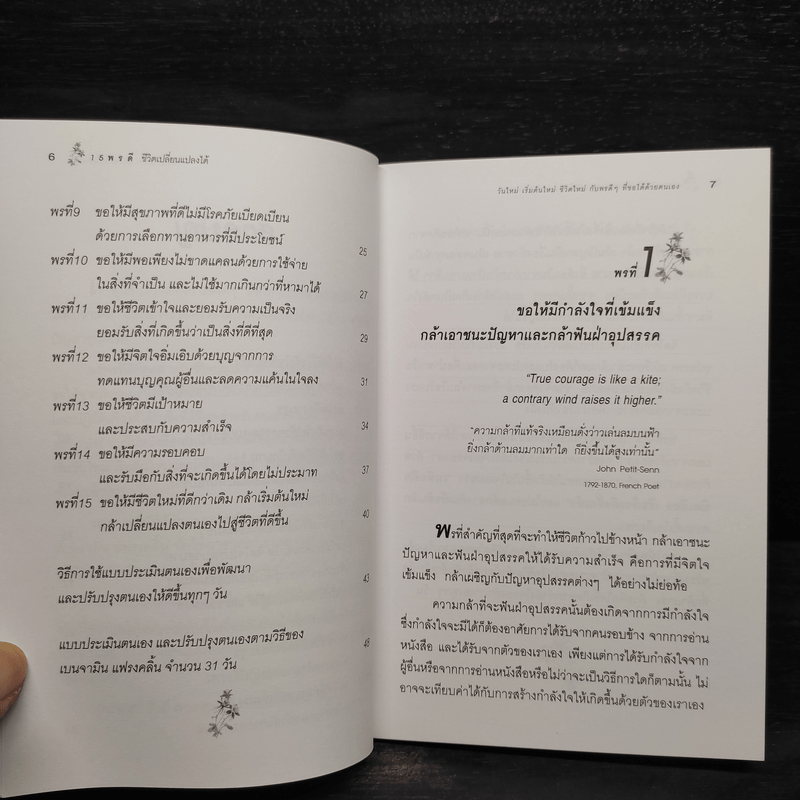 6 15 พรดี ชีวิตเปลี่ยนแปลงได้
พรที่9 ขอให้มีสุขภาพที่ดีไม่มีโรคภัยเบียดเบียน
ด้วยการเลือกทานอาหารที่มีประโยชน์ 25
พรที่10 ขอให้มีพอเพียงไม่ขาดแคลนด้วยการใช้จ่าย
ในสิ่งที่จำเป็น และไม่ใช้มากเกินกว่าที่หามาได้ 27
พรที่11 ขอให้ชีวิตเข้าใจและยอมรับความเป็นจริง
ยอมรับสิ่งที่เกิดขึ้นว่าเป็นสิ่งที่ดีที่สุด 29
พรที่12 ขอให้มีจิตใจอิ่มเอิบด้วยบุญจากการ
ทดแทนบุญคุณผู้อื่นและลดความแค้นในใจลง 31
พรที่13 ขอให้ชีวิตมีเป้าหมาย
และประสบกับความสำเร็จ 34
พรที่14 ขอให้มีความรอบคอบ
และรับมือกับสิ่งที่จะเกิดขึ้นได้โดยไม่ประมาท 37
พรที่15 ขอให้มีชีวิตใหม่ที่ดีกว่าเดิม กล้าเริ่มต้นใหม่
กล้าเปลี่ยนแปลงตนเองไปสู่ชีวิตที่ดีขึ้น 40
วิธีการใช้แบบประเมินตนเองเพื่อพัฒนา
และปรับปรุงตนเองให้ดีขึ้นทุกๆ วัน 43
แบบประเมินตนเอง และปรับปรุงตนเองตามวิธีของ 46
เบนจามิน แฟรงคลิ้น จำนวน 31 วัน
วันใหม่ เริ่มต้นใหม่ ชีวิตใหม่ กับพรดีๆ ที่ขอได้ด้วยตนเอง 7
พรที่ 1
ขอให้มีกำลังใจที่เข้มแข็ง
กล้าเอาชนะปัญหาและกล้าฟันฝ่าอุปสรรค
“True courage is like a kite;
a contrary wind raises it higher.”
“ความกล้าที่แท้จริงเหมือนดั่งว่าวเล่นลมบนฟ้า
ยิ่งกล้าต้านลมมากเท่าใด ก็ยิ่งขึ้นได้สูงเท่านั้น”
John Petit-Senn
1792-1870, French Poet
พรที่สำคัญที่สุดที่จะทำให้ชีวิตก้าวไปข้างหน้า กล้าเอาชนะ
ปัญหาและฟันฝ่าอุปสรรคให้ได้รับความสำเร็จ คือการที่มีจิตใจ
เข้มแข็ง กล้าเผชิญกับปัญหาอุปสรรคต่างๆ ได้อย่างไม่ย่อท้อ
ความกล้าที่จะฟันฝ่าอุปสรรคนั้นต้องเกิดจากการมีกำลังใจ
ซึ่งกำลังใจจะมีได้ก็ต้องอาศัยการได้รับจากคนรอบข้าง จากการอ่าน
หนังสือ และได้รับจากตัวของเราเอง เพียงแต่การได้รับกำลังใจจาก
ผู้อื่นหรือจากการอ่านหนังสือหรือไม่ว่าจะเป็นวิธีการใดก็ตามนั้น ไม่
อาจจะเทียบค่าได้กับการสร้างกำลังใจให้เกิดขึ้นด้วยตัวของเราเอง